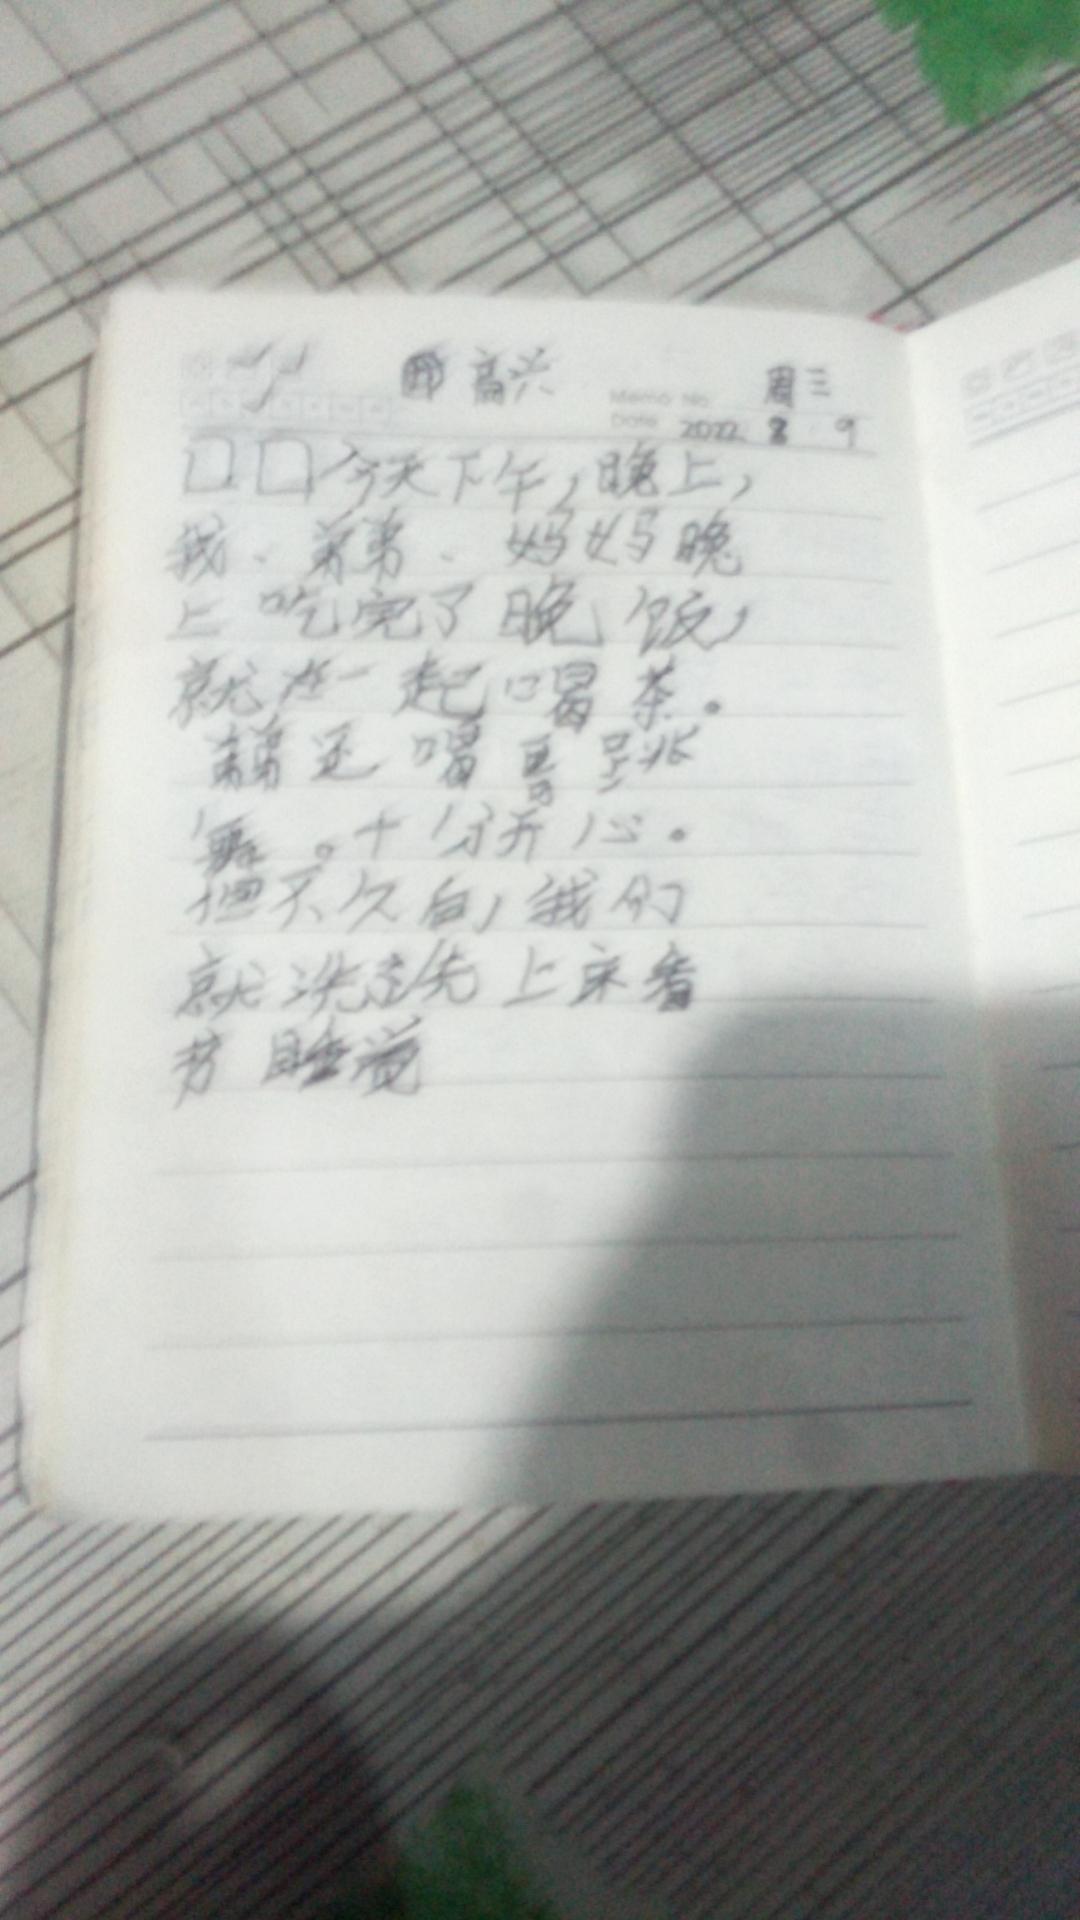 高兴 周三
Memo No.
Date 2022 8 9
口口今天下午,晚上,
我、弟弟、妈妈晚
上吃完了晚饭,
就在一起喝茶。
弟弟还唱哥跳
舞。十分开心。
但不久后,我们
就洗洗先上床看
书睡觉